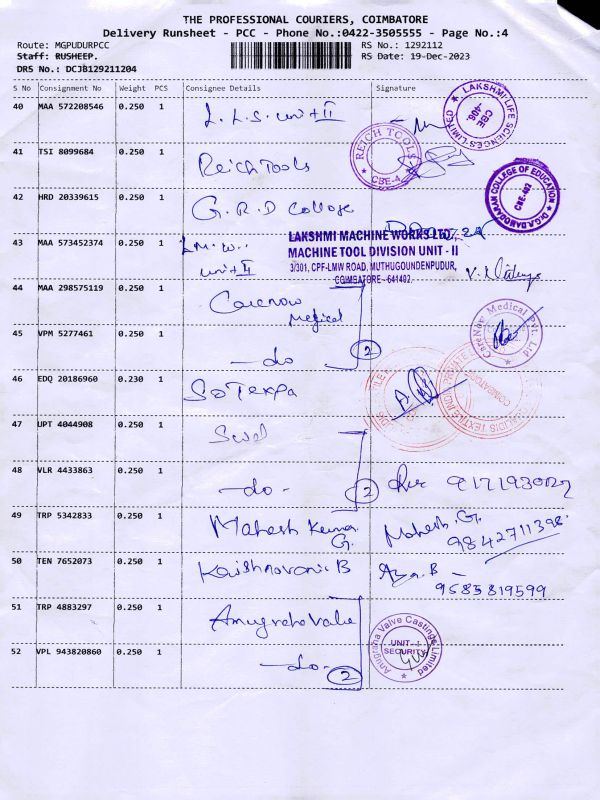 THE PROFESSIONAL COURIERS, COIMBATORE
Delivery Runsheet - PCC - Phone No.:0422-3505555 - Page No.:4
Route: MGPUDURPCC
RS No.: 1292112
Staff: RUSHEEP.
RS Date: 19-Dec-2023
DRS No.: DCJB129211204
S No Consignment No Weight PCS Consignee Details Signature
40 MAA 572208546 0.250 1 L.L.S. unit II
LAKSHMI LIFE SCIENCES LIMITED
CBE
-406.
41 TSI 8099684 0.250 1 Reich Tools
REICH TOOLS
CBE-4
42 HRD 20339615 0.250 1 G.R.D College
Dr.G.R.DAMODARAN COLLEGE OF EDUCATION
CBE-402
43 MAA 573452374 0.250 1 L.M.W.. unit II
LAKSHMI MACHINE WORKS LTD.,
MACHINE TOOL DIVISION UNIT - II
3/301, CPF-LMW ROAD, MUTHUGOUNDENPUDUR,
COIMBATORE - 641402.
44 MAA 298575119 0.250 1 Carenow Medical
CareNow Medical Pvt. Ltd
45 VPM 5277461 0.250 1 -do 2
46 EDQ 20186960 0.230 1 SoTexpa
47 UPT 4044908 0.250 1
48 VLR 4433863 0.250 1 -do- 2
49 TRP 5342833 0.250 1 Mahesh Kumar G. Mahesh.G.
9842711398
50 TEN 7652073 0.250 1 B
9585819599
51 TRP 4883297 0.250 1 Anugraha Valve
52 VPL 943820860 0.250 1 -do- 2
Anugraha Valve Castings Limited
UNIT-I
SECURITY